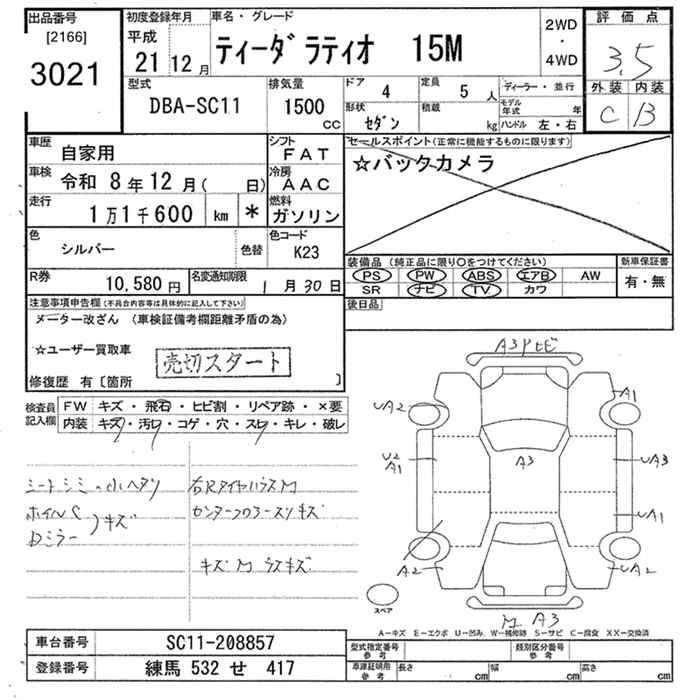 出品番号
[2166]
3021
初度登録年月
平成
21 12月
車名・グレード
ティーダラティオ 15M
2WD
・
4WD
評価点
3.5
外装 内装
C B
型式
DBA-SC11
排気量
1500
cc
ドア 4
定員 5 人
形状 セダン
積載 kg
ディーラー・並行
モデル年式 年
ハンドル 左・右
車歴 自家用
シフト FAT
車検 令和 8年12月( 日)
冷房 AAC
走行 1万1千600 km *
燃料 ガソリン
色 シルバー 色替
色コード K23
R券 10,580円
名変通知期限 1月30日
セールスポイント(正常に機能するものに限ります)
☆バックカメラ
装備品(純正品に限り○をつけてください)
新車保証書
PS PW ABS エアB AW
SR ナビ TV カワ
有・無
後日品
注意事項申告欄(不具合内容等は具体的に記入して下さい)
メーター改ざん (車検証備考欄距離矛盾の為)
☆ユーザー買取車
売切スタート
修復歴 有〔箇所 〕
検査員記入欄
FW キズ・飛石・ヒビ割・リペア跡・×要
内装 キズ・汚レ・コゲ・穴・スレ・キレ・破レ
シートシミ
ホイルC
Dミラー
キズ
右Rタイヤハウス M
キズ M
A3
A1
UA2
U2
A1
A3
UA3
UA1
A2
UA2
M A3
スペア
A-キズ E-エクボ U-凹み W-補修跡 S-サビ C-腐食 XX-交換済
車台番号 SC11-208857
登録番号 練馬 532 せ 417
型式指定番号
参考
類別区分番号
参考
車庫証明用
参考
長さ cm
幅 cm
高さ cm